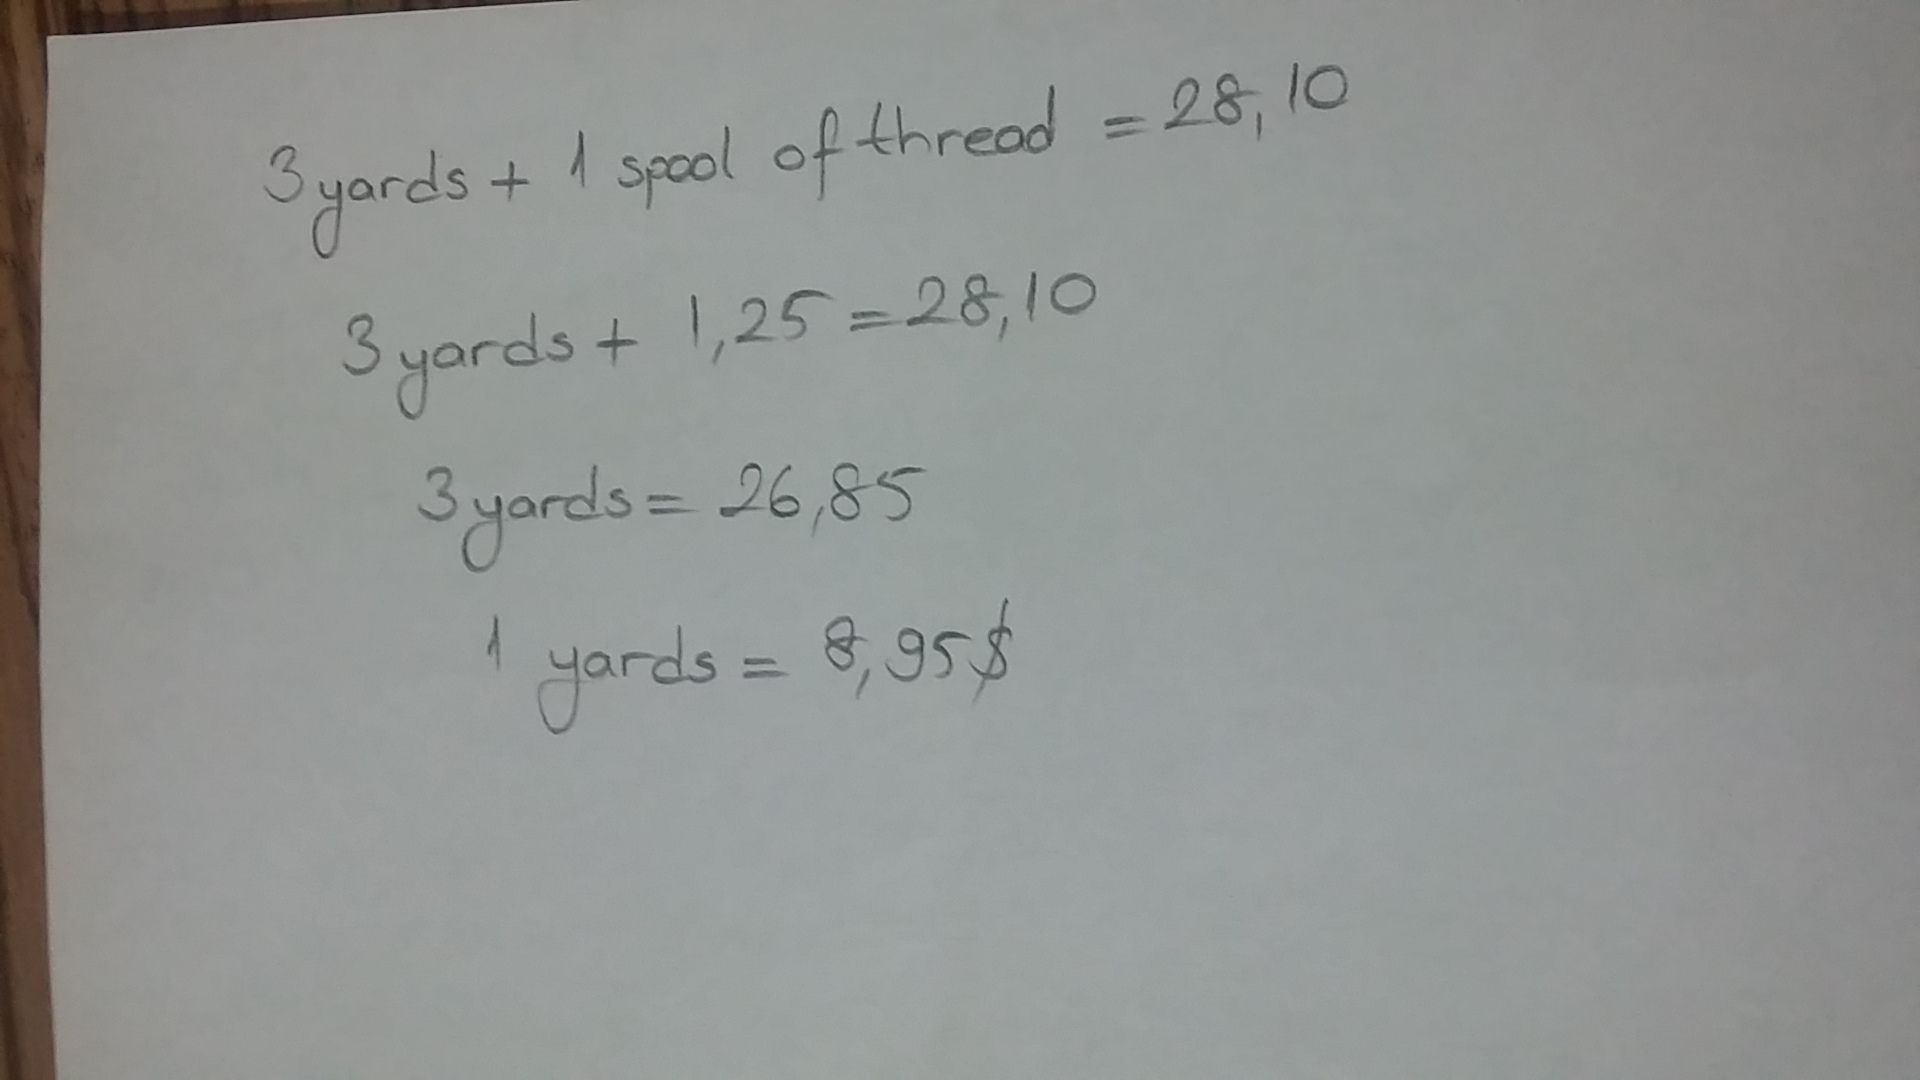 3 yards + 1 spool of thread = 28,10
3 yards + 1,25 = 28,10
3 yards = 26,85
1 yards = 8,95$